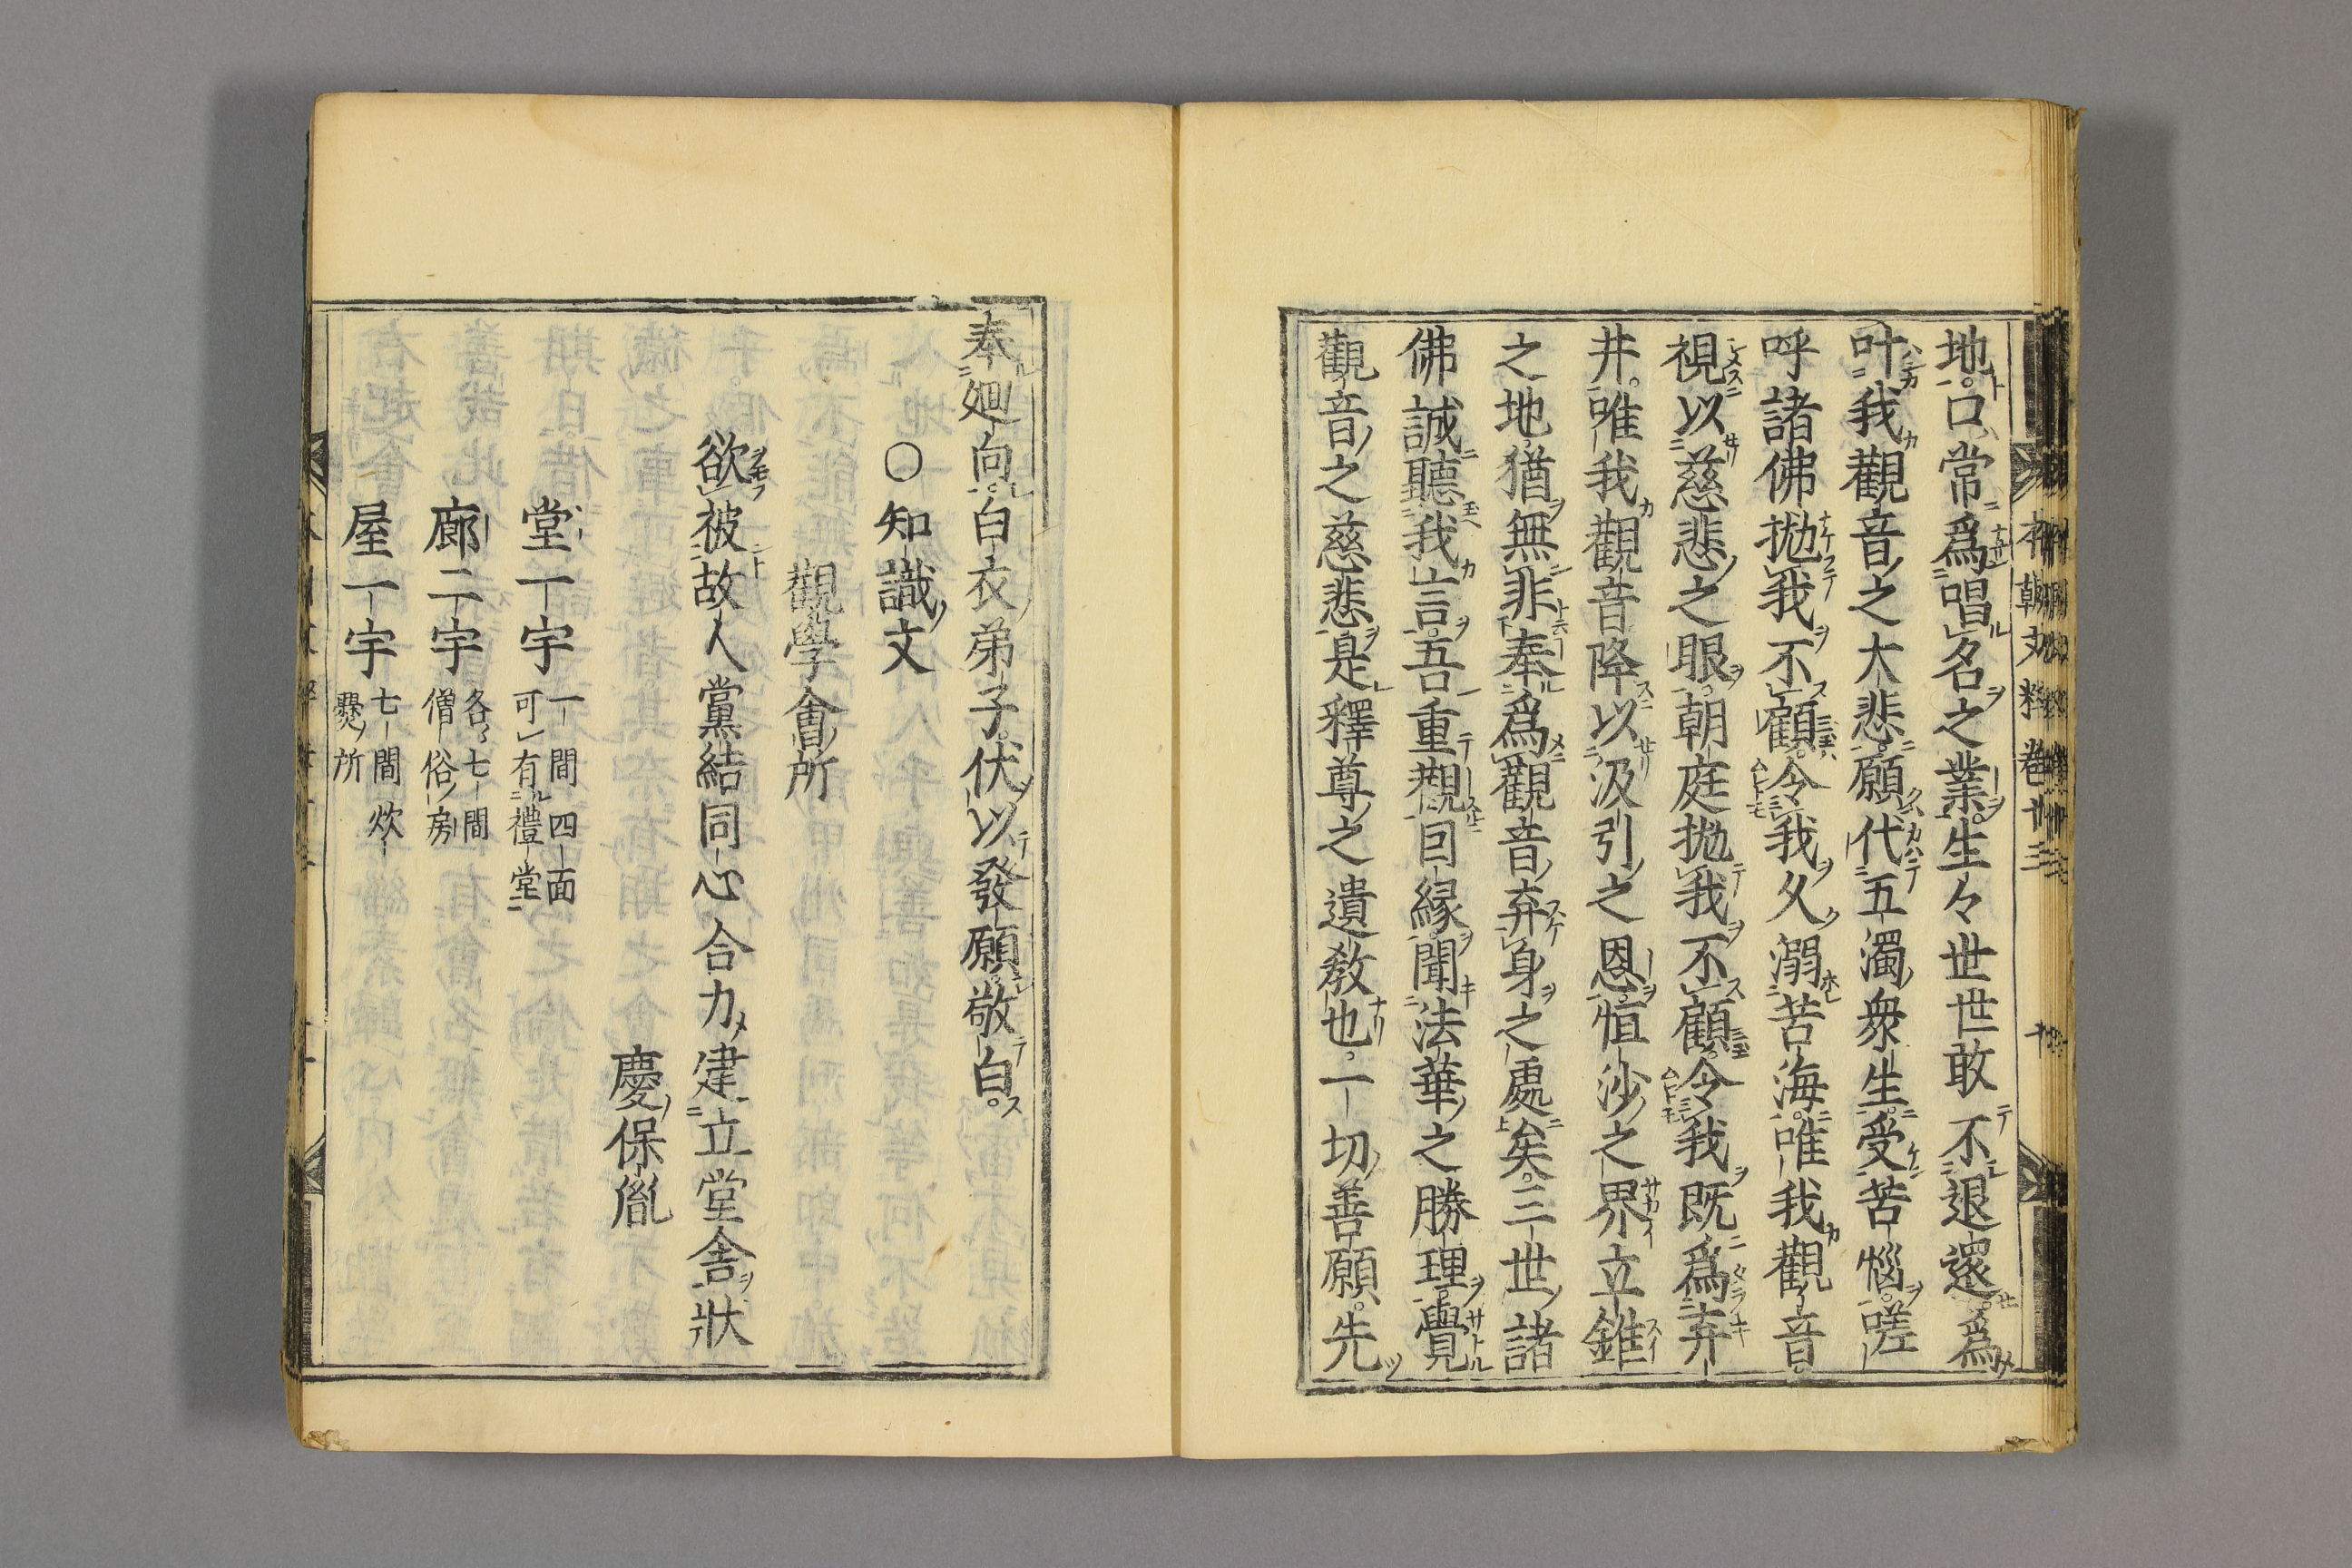 地口常爲唱名之業生々世世敢不退還爲
叶我觀音之大悲願代五濁衆生受苦惱嗟
呼諸佛拋我不顧令我久溺苦海唯我觀音
視以慈悲之眼朝庭拋我不顧令我既爲弃
井唯我觀音降以汲引之恩恒沙之界立錐
之地猶無非奉爲觀音弃身之處矣三世諸
佛誠聽我言吾重觀回縁聞法華之勝理覺
觀音之慈悲是釋尊之遺教也一切善願先
奉廻向白衣弟子伏以發願敬白
○知識文
觀學會所
欲被故人黨結同心合力建立堂舎狀
慶保胤
堂一宇 一間四面
可有禮堂
廊二宇 各々七間
僧俗房
屋一宇 七間炊
爨所